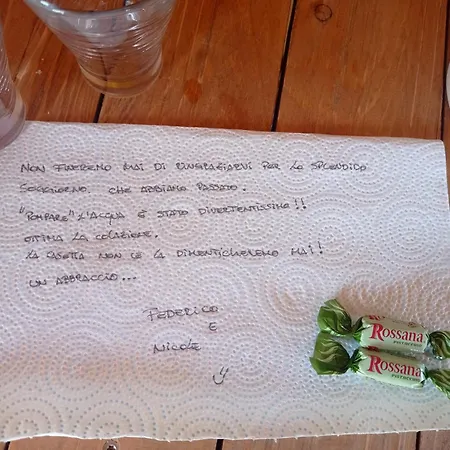 NON FINIREMO MAI DI RINGRAZIARVI PER LO SPLENDIDO
SOGGIORNO, CHE ABBIAMO PASSATO.
"POMPARE" L'ACQUA È STATO DIVERTENTISSIMO!!
OTTIMA LA COLAZIONE.
LA CASETTA NON CE LA DIMENTICHEREMO MAI!
UN ABBRACCIO...
FEDERICO
E
NICOLE
Rossana
PISTACCHIO
Rossana
PISTACCHIO